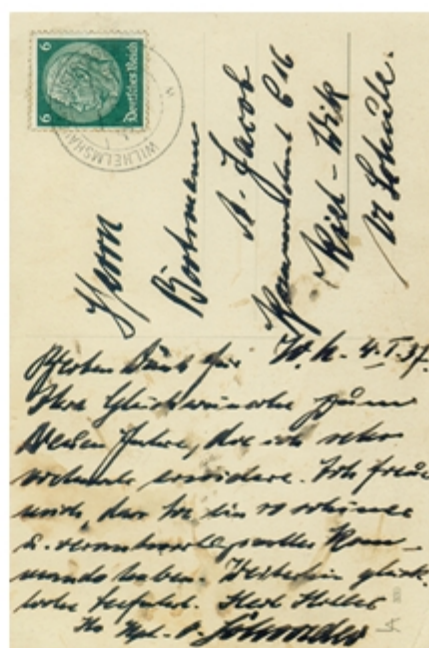 6
6
Deutsches Reich
WILHELMSHAVEN
Herrn
Bootsmann
A. Jacob
Kommandant C 16
Kiel-Wik
U Schule.
W.h. 4.I.37.
Herzlichen Dank für
Ihre Glückwünsche zum
Neuen Jahre, die ich sehr
erwidere. Ich freue
mich, daß Sie ein so schönes
u. verantwortungsvolles Kom-
mando haben. Weiterhin glück-
liche Seefahrt. Heil Hitler
Ihr